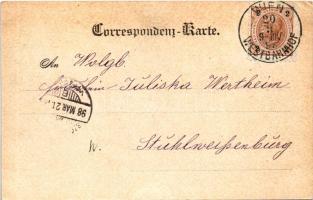 Correspondenz-Karte.
WIEN
20
WESTBAHNHOF
An Wolgb.
Fräulein Juliska Wertheim
98 MAR 21
W.
Stuhlweißenburg